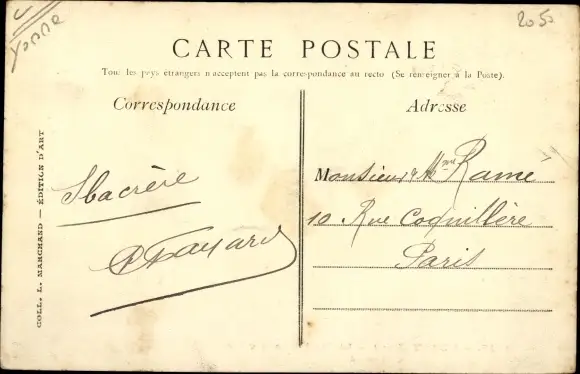 Yonne
2050
CARTE POSTALE
Tous les pays étrangers n'acceptent pas la correspondance au recto (Se renseigner à la Poste).
Correspondance
Adresse
Fayard
Monsieur & Mme Ramé
10 Rue Coquillère
Paris
COLL. L. MARCHAND — ÉDITION D'ART